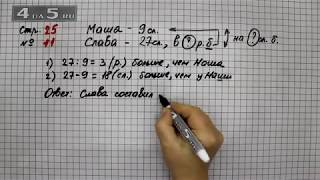 4 ДЛЯ 5.ru
Стр. 25 Маша - 9 сл.
№ 11 Слава - 27 сл., в ? р. б. на ? сл. б.
1) 27 : 9 = 3 (р.) больше, чем Маша
2) 27 - 9 = 18 (сл.) больше, чем у Маши
Ответ: Слава составил